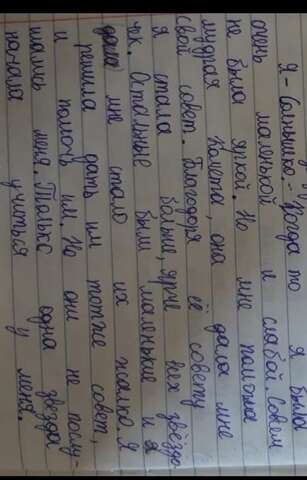 Я - Солнышко. - Когда то я была
очень маленькой и слабой. Совсем
не была яркой. Но мне помогла
мудрая Комета, она дала мне
свой совет. Благодаря её совету
я стала больше, ярче всех звёздо-
чк. Остальные были маленькие и
мне стало их жалко. Я
решила дать им тотже совет,
и помочь им. Но они не послу-
шались меня. Только одна звезда
начала учиться у меня.